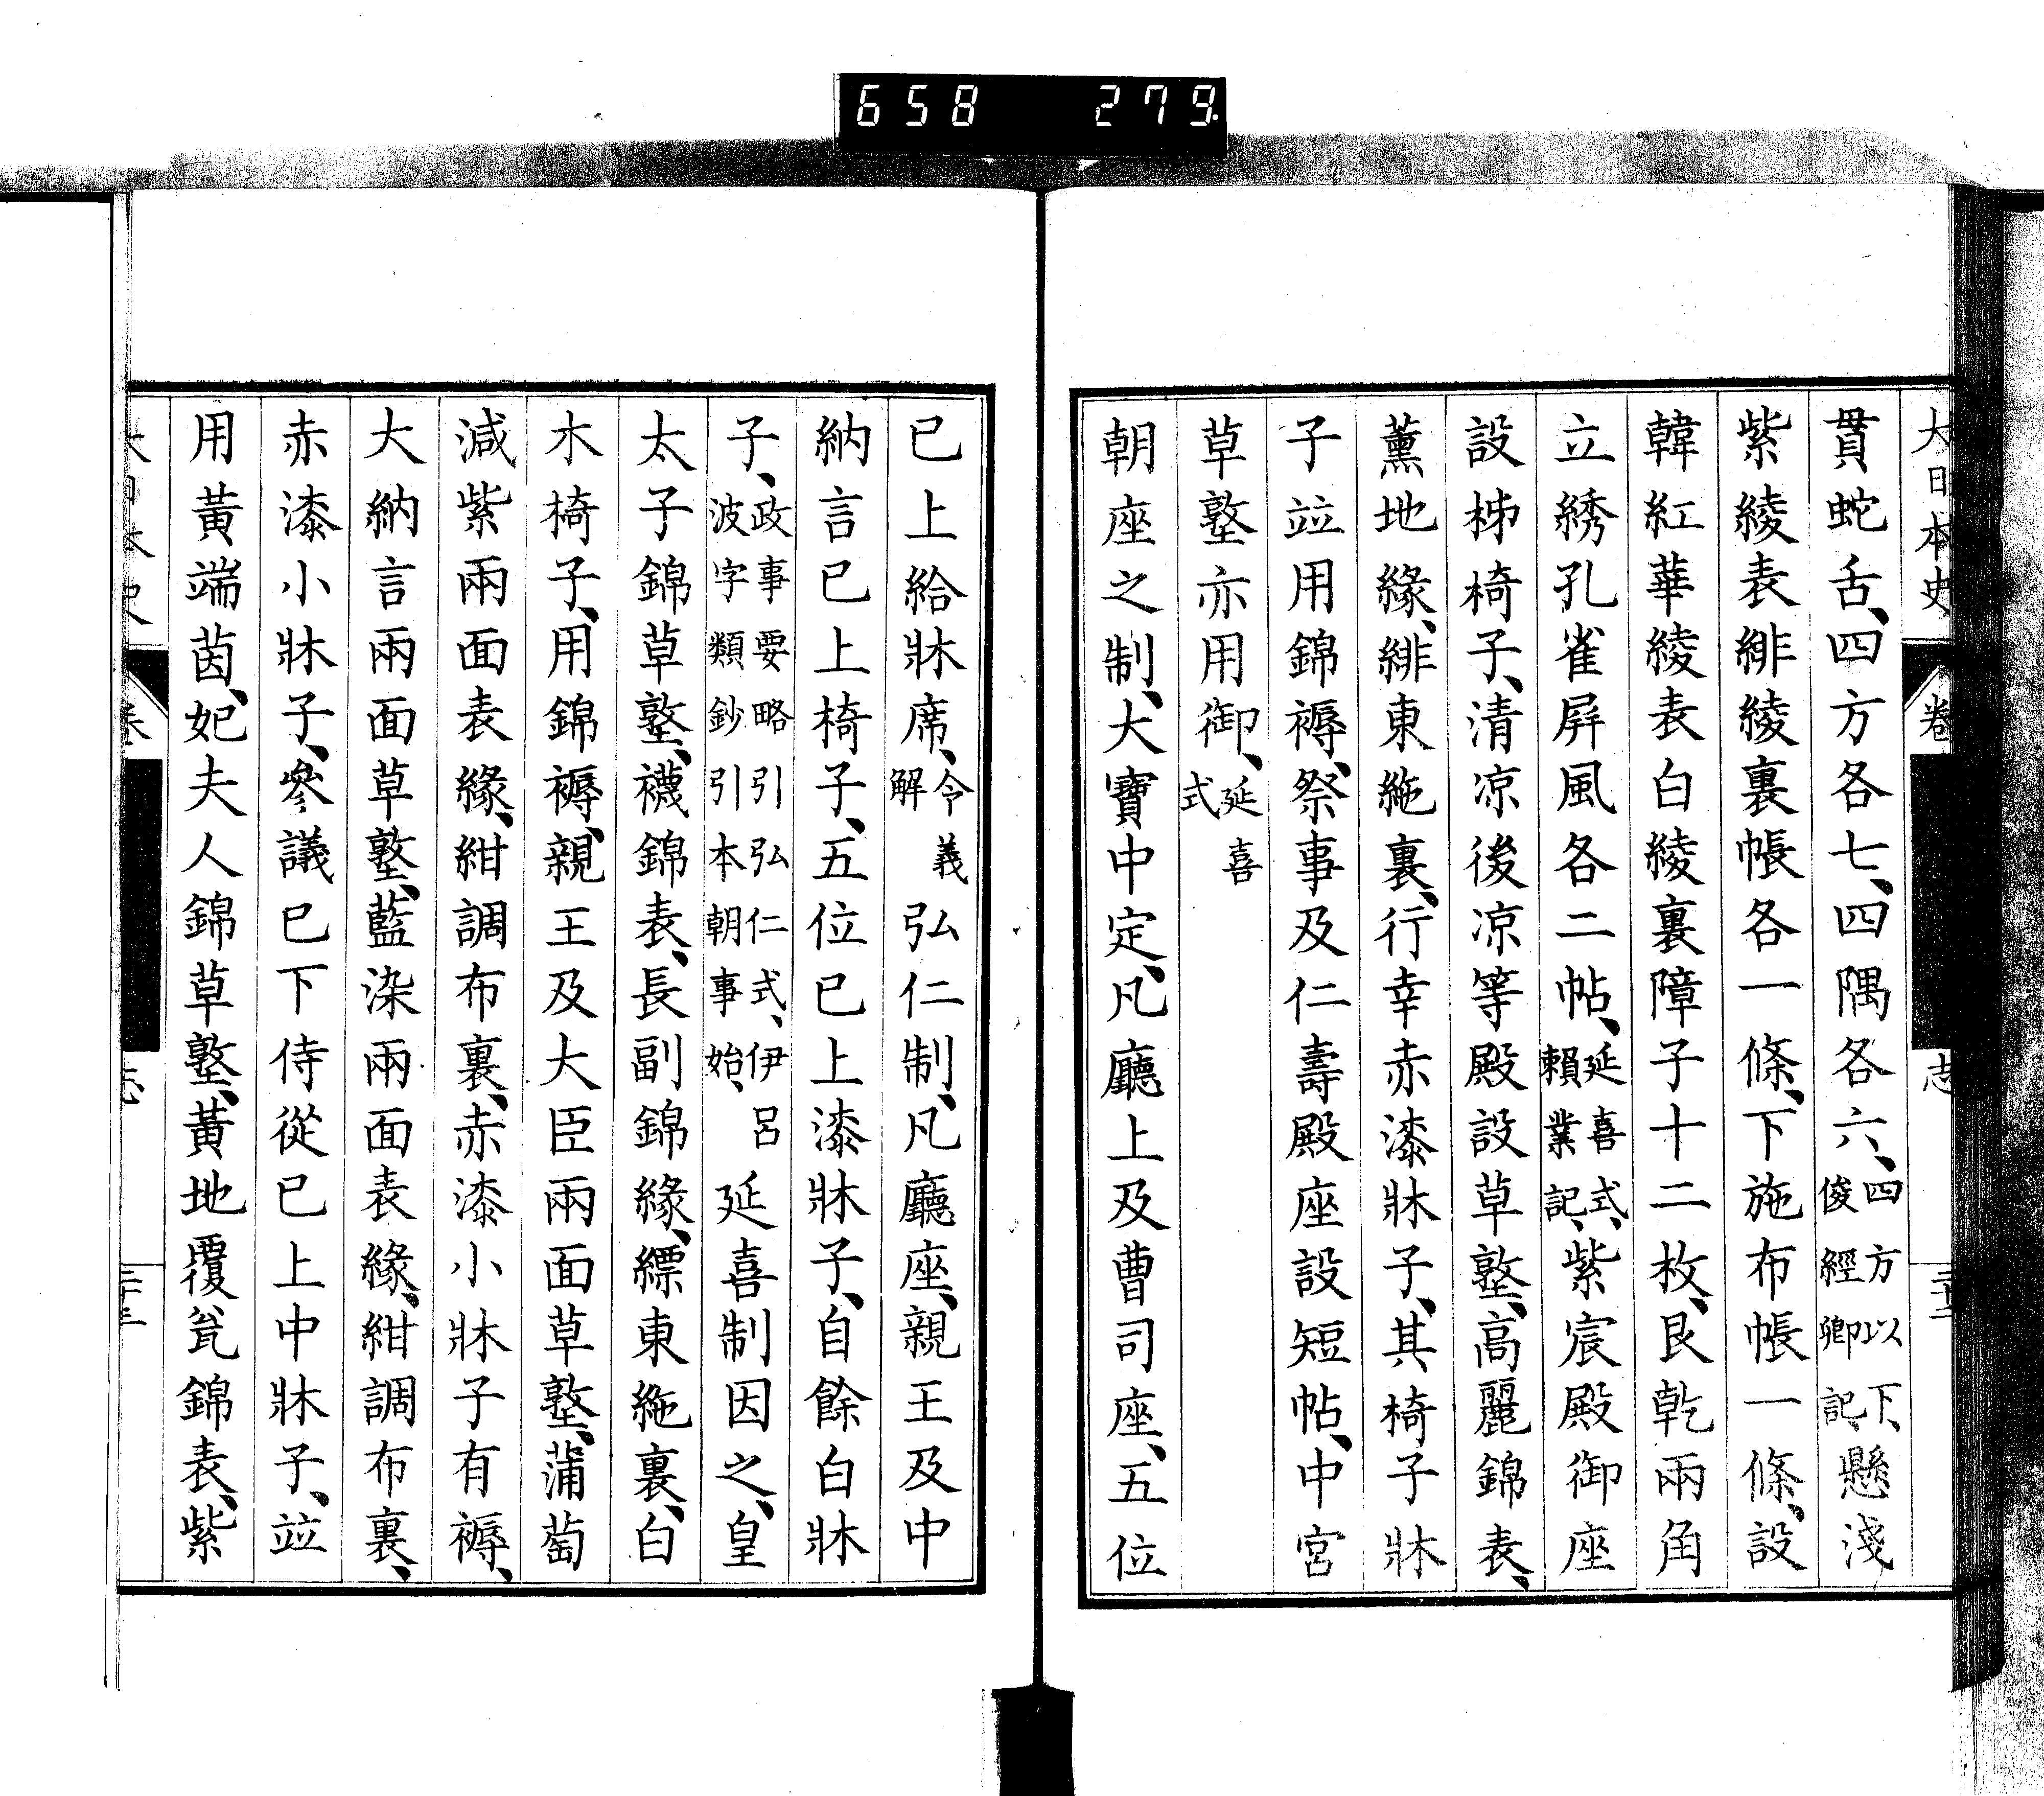 658 279
大日本史 卷 志
貫蛇舌、四方各七、四隅各六、四方以下、俊經卿記、懸淺
紫綾表緋綾裏帳各一條、下施布帳一條、設
韓紅華綾表白綾裏障子十二枚、艮乾兩角
立綉孔雀屏風各二帖、延喜式、賴業記、紫宸殿御座
設㭰椅子、清凉後凉等殿設草墪、高麗錦表、
薰地緣、緋東絁裏、行幸赤漆牀子、其椅子牀
子竝用錦褥、祭事及仁壽殿座設短帖、中宮
草墪亦用御、延喜式
朝座之制、大寶中定、凡廳上及曹司座、五位
已上給牀席、令義解弘仁制、凡廳座、親王及中
納言已上椅子、五位已上漆牀子、自餘白牀
子、政事要略引弘仁式、伊呂波字類鈔引本朝事始、延喜制因之、皇
太子錦草墪、襪錦表、長副錦緣、縹東絁裏、白
木椅子、用錦褥、親王及大臣兩面草墪、蒲萄
減紫兩面表緣、紺調布裏、赤漆小牀子有褥、
大納言兩面草墪、藍染兩面表緣、紺調布裏、
赤漆小牀子、參議已下侍從已上中牀子、竝
用黃端茵、妃夫人錦草墪、黃地覆瓮錦表、紫